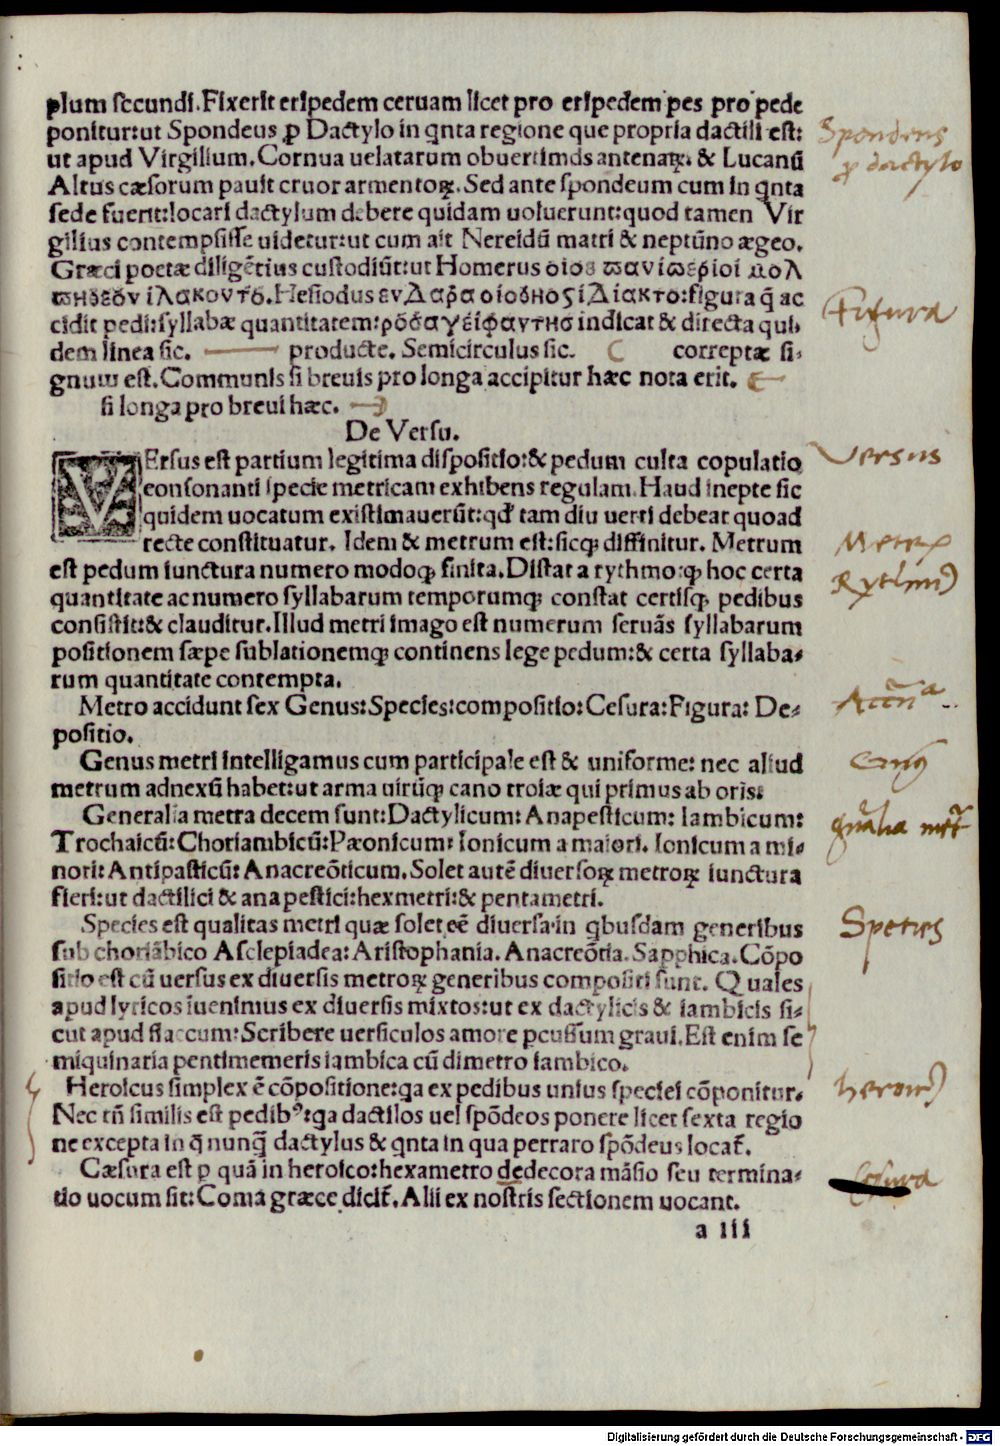 plum secundi.Fixerit eripedem ceruam licet pro eripedem pes pro pede
ponitur:ut Spondeus ꝓ Dactylo in q̇nta regione que propria dactili est:
ut apud Virgilium.Cornua uelatarum obuertimds antenaꝝ.& Lucanũ
Altus cæsorum pauit cruor armentoꝝ.Sed ante spondeum cum in q̇nta
sede fuerit:locari dactylum debere quidam uoluerunt:quod tamen Vir
gilius contempsisse uidetur:ut cum ait Nereidũ matri & neptũno ægeo.
Græci poetæ diligẽtius custodiũt:ut Homerus
Hesiodus figura q̃ ac
cidit pedi:syllabæ quantitatem: indicat & directa qui-
dem linea sic. ——— producte. Semicirculus sic. C correptæ si-
gnum est.Communis si breuis pro longa accipitur hæc nota erit.
si longa pro breui hæc.
De Versu.
VErsus est partium legitima dispositio:& pedum culta copulatio
consonanti specie metricam exhibens regulam.Haud inepte sic
quidem uocatum existimauerũt:qđ tam diu uerti debeat quoad
recte constituatur. Idem & metrum est:sicqꝫ diffinitur. Metrum
est pedum iunctura numero modoqꝫ finita.Distat a rythmo:qꝫ hoc certa
quantitate ac numero syllabarum temporumqꝫ constat certisqꝫ pedibus
consistit:& clauditur.Illud metri imago est numerum seruãs syllabarum
positionem sæpe sublationemqꝫ continens lege pedum:& certa syllaba-
rum quantitate contempta.
Metro accidunt sex Genus:Species:compositio:Cesura:Figura: De-
positio.
Genus metri intelligamus cum participale est & uniforme: nec aliud
metrum adnexũ habet:ut arma uirũqꝫ cano troiæ qui primus ab oris:
Generalia metra decem sunt:Dactylicum: Anapesticum: Iambicum:
Trochaicũ:Choriambicũ:Pæonicum: Ionicum a maiori. Ionicum a mi-
nori:Antipasticũ:Anacreõticum.Solet autẽ diuersoꝝ metroꝝ iunctura
fieri:ut dactilici & anapestici:hexmetri:& pentametri.
Species est qualitas metri quæ solet eẽ diuersa in q̇busdam generibus
sub choriãbico Asclepiadea:Aristophania.Anacreõtia.Sapphica.Cõpo
sitio est cũ uersus ex diuersis metroꝝ generibus compositi sunt. Quales
apud lyricos iuenimus ex diuersis mixtos:ut ex dactylicis & iambicis si-
cut apud flaccum:Scribere uersiculos amore ꝑcussum graui.Est enim se
miquinaria pentimemeris iambica cũ dimetro iambico.
Heroicus simplex ẽ cõpositione:q̇a ex pedibus unius speciei cõponitur.
Nec tñ similis est pedibꝰ:q̇a dactilos uel spõdeos ponere licet sexta regio
ne excepta in q̃ nunq̃ dactylus & q̇nta in qua perraro spõdeus locať.
Cæsura est ꝑ quã in heroico:hexametro dedecora mãsio seu termina-
tio uocum sit:Coma græce dicit̃.Alii ex nostris sectionem uocant.
a iii
Spondeus
ꝓ dactylo
Figura
Versus
Metrum
Rythmus
Genus
Species
heroicus
Cesura
Digitalisierung gefördert durch die Deutsche Forschungsgemeinschaft - DFG